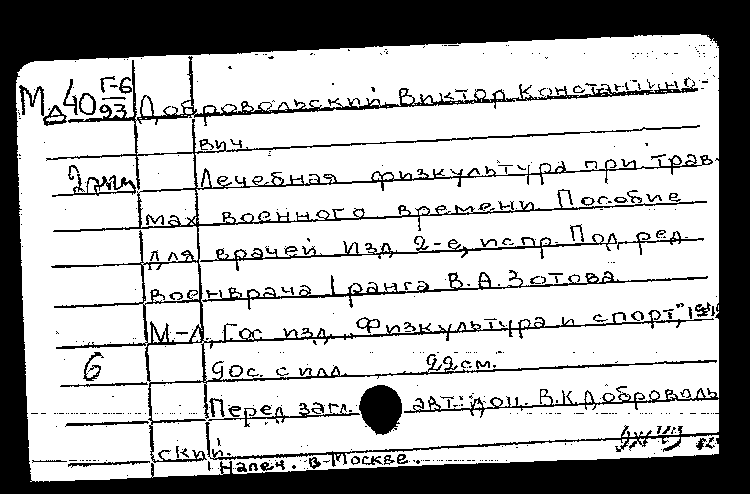 МД40 Г-6/93 Добровольский, Виктор Константино-
вич.
2 Лечебная физкультура при трав-
мах военного времени Пособие
для врачей Изд. 2-е, испр. Под ред.
военврача I ранга В.А. Зотова
М.-Л., Гос изд. „Физкультура и спорт",
6 90с. с илл. 22см.
Перед загл. авт.: доц. В.К. Доброволь
ский.
Напеч. в Москве.